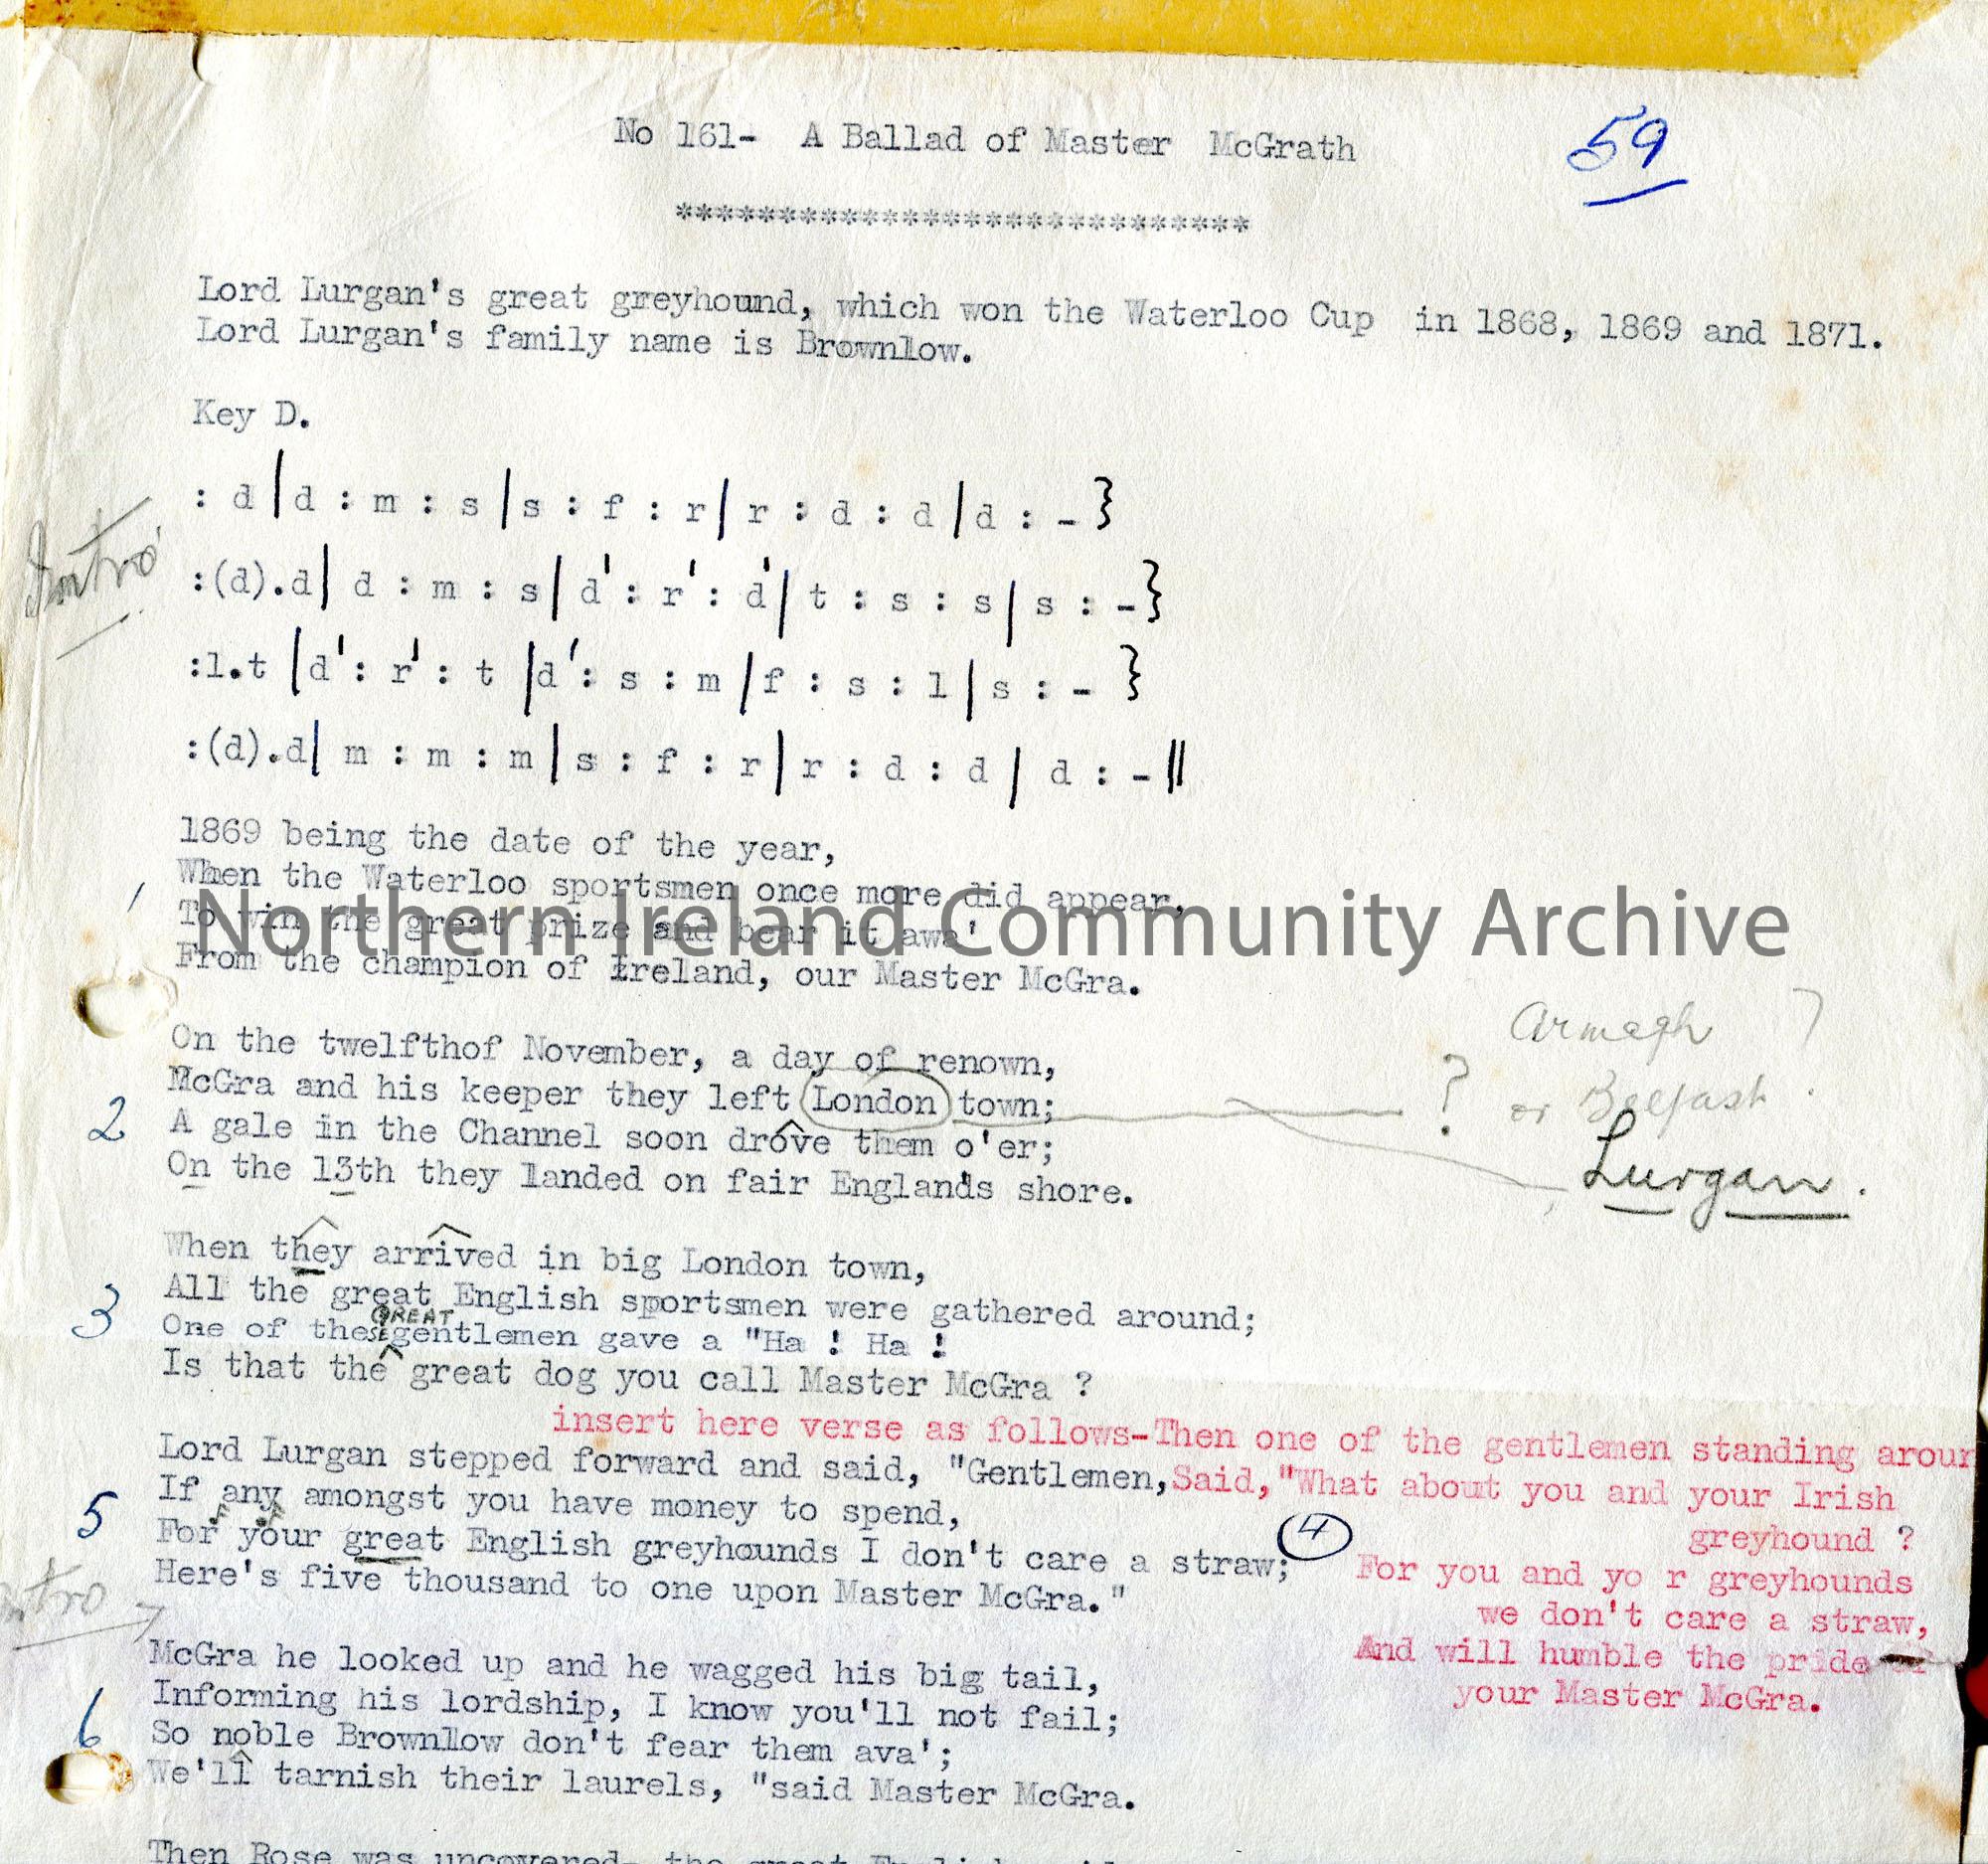 No 161- A Ballad of Master McGrath
59
****************************
Lord Lurgan's great greyhound, which won the Waterloo Cup in 1868, 1869 and 1871.
Lord Lurgan's family name is Brownlow.
Key D.
: d | d : m : s | s : f : r | r : d : d | d : - }
Intro
:(d).d | d : m : s | d' : r' : d' | t : s : s | s : - }
:l.t | d' : r' : t | d' : s : m | f : s : l | s : - }
:(d).d | m : m : m | s : f : r | r : d : d | d : - ||
1869 being the date of the year,
When the Waterloo sportsmen once more did appear,
1
To win the great prize and bear it awa'
Northern Ireland Community Archive
From the champion of Ireland, our Master McGra.
Armagh ?
On the twelfthof November, a day of renown,
McGra and his keeper they left London town;
? or Belfast.
2
A gale in the Channel soon drove them o'er;
On the 13th they landed on fair England's shore.
Lurgan.
When they arrived in big London town,
All the great English sportsmen were gathered around;
3
GREAT
One of these gentlemen gave a "Ha ! Ha !
Is that the great dog you call Master McGra ?
insert here verse as follows-Then one of the gentlemen standing aroun
Lord Lurgan stepped forward and said, "Gentlemen,
Said,"What about you and your Irish
greyhound ?
If any amongst you have money to spend,
5
For your great English greyhounds I don't care a straw;
Here's five thousand to one upon Master McGra."
4
For you and yo r greyhounds
we don't care a straw,
And will humble the pride of
your Master McGra.
ntro
McGra he looked up and he wagged his big tail,
Informing his lordship, I know you'll not fail;
6
So noble Brownlow don't fear them ava';
We'll tarnish their laurels, "said Master McGra.
Then Rose was uncovered- the great English